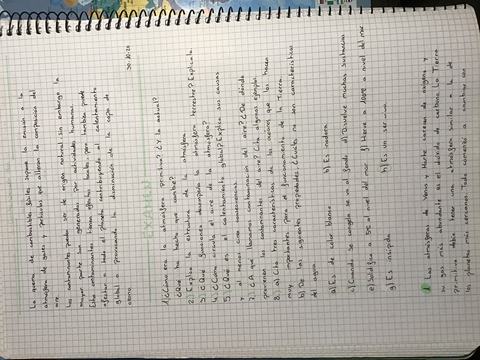 La quema de combustibles fósiles supone la emisión a la
atmósfera de gases y partículas que alteran la composición del
aire.
Los contaminantes pueden ser de origen natural sin embargo la
mayor parte son generados por actividades humanas.
Estos contaminantes tienen efectos locales pero también puede
afectar a todo el planeta contribuyendo al calentamiento
global o provocando la disminución de la capa de
ozono
30-10-20
EXAMEN
1. ¿Cómo era la atmósfera primitiva? ¿Y la actual?
¿Qué ha hecho que cambie?
2. Explica la estructura de la atmósfera
3. ¿Qué funciones desempeña la atmósfera terrestre? Explícala
4. ¿Cómo circula el aire de la atmósfera?
5. ¿Qué es el calentamiento global? Explica sus causas
y al menos cinco consecuencias
7. ¿A qué llamamos contaminación del aire? ¿De dónde
provienen los contaminantes del aire? Cita algunos ejemplos
8. a) Cita tres características de los océanos que los hacen
muy importantes para el funcionamiento de la Tierra.
b) De las siguientes propiedades. ¿Cuáles no son características
del agua?
a) Es de color blanco b) Es inodora
c) Cuando se congela se va al fondo d) Disuelve muchas sustancias
e) Solidifica a 5º al nivel del mar f) Hierve a 100º a nivel del mar
g) Es insípida h) Es un ser vivo
1 Las atmósferas de Venus y Marte carecen de oxígeno y
su gas más abundante es el dióxido de carbono. La Tierra
primitiva debía tener una atmósfera similar a la de
los planetas más cercanos. Todo comenzó a cambiar con